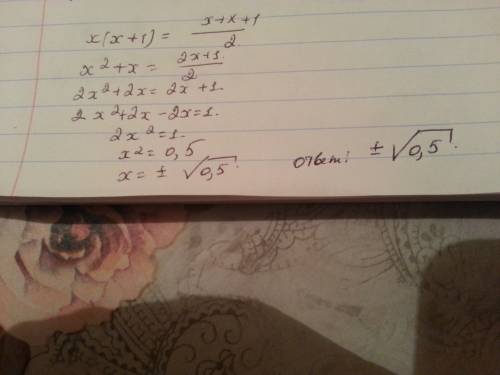 x(x+1) = \frac{x+x+1}{2}
x² + x = \frac{2x+1}{2}
2x² + 2x = 2x + 1.
2x² + 2x - 2x = 1.
2x² = 1.
x² = 0,5
x = ± √0,5
ответ: ± √0,5